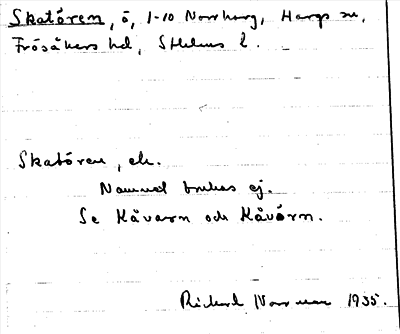 Skatören, ö, 1-10 Norrharg, Hargs sn,
Frösåkers hd, Sthlms l.
Skatören, ek.
Namnet brukas ej.
Se Håvarn och Håvörn.
Rickard Norrman 1935.